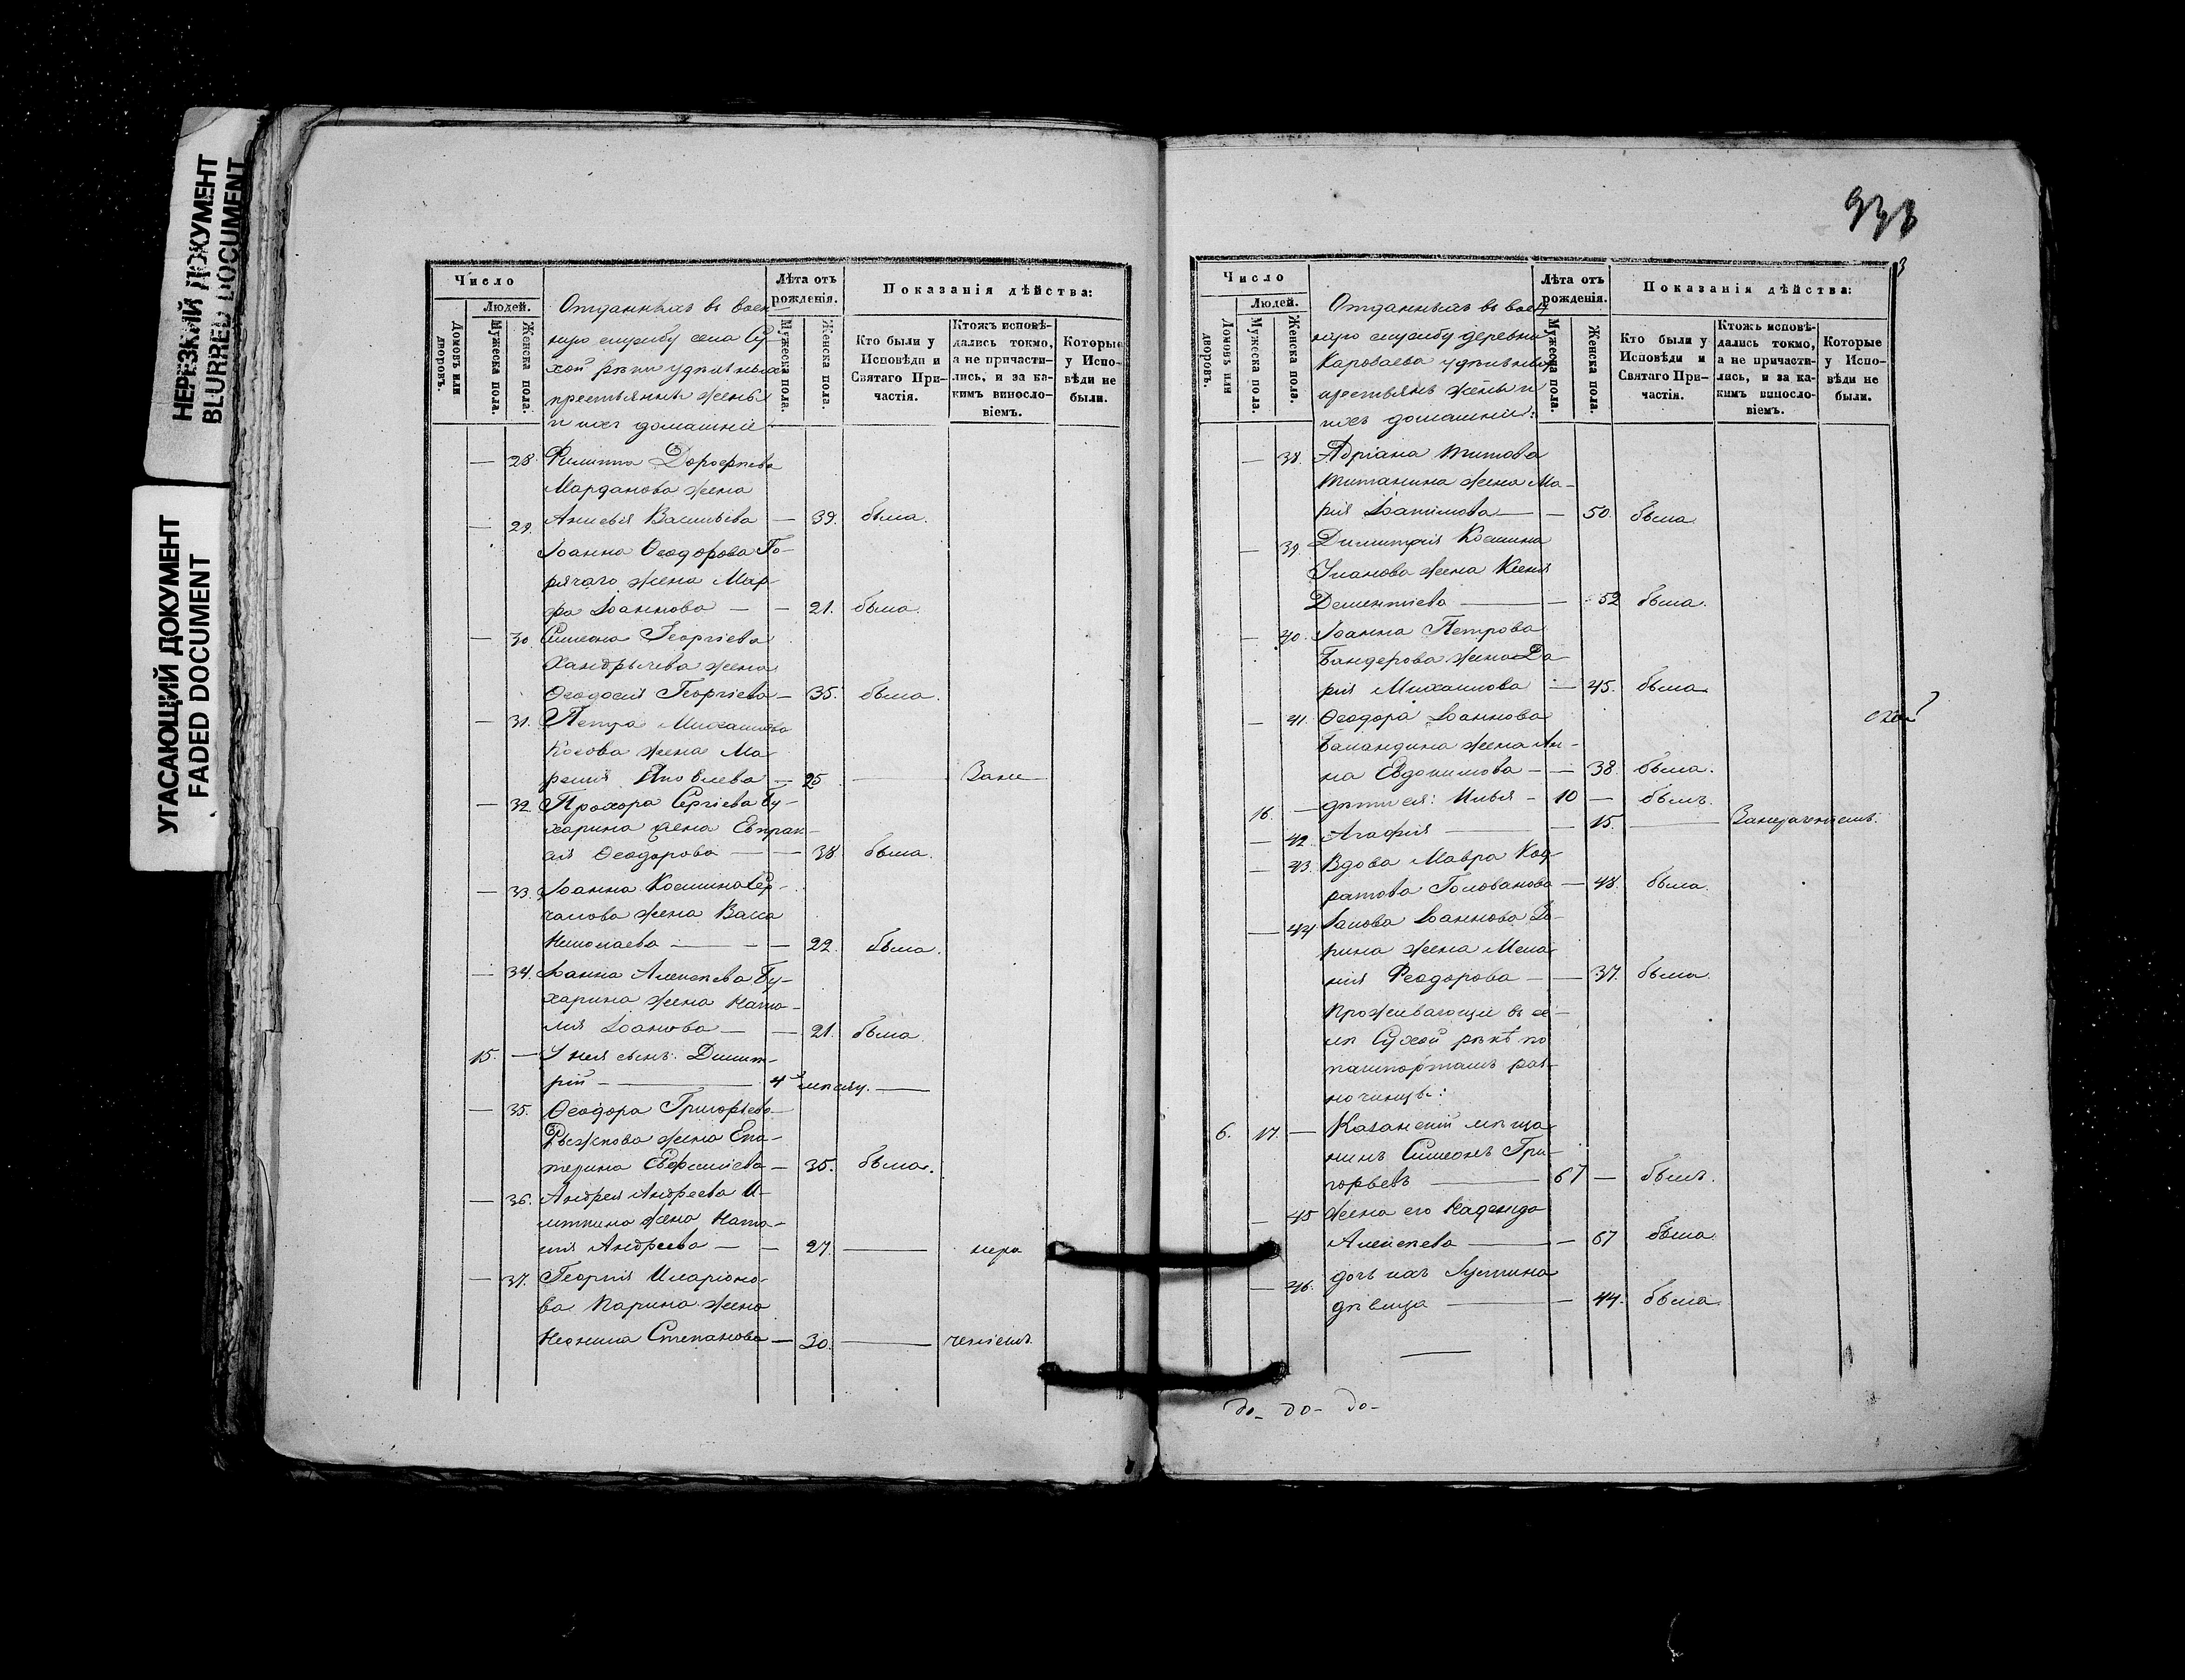 НЕРЕЗКИЙ ДОКУМЕНТ
BLURRED DOCUMENT
УГАСАЮЩИЙ ДОКУМЕНТ
FADED DOCUMENT
Число
Людей.
Домовъ или дворовъ.
Мужеска пола.
Женска пола.
Отданныхъ въ воен-
ную службу села Су-
хой рѣки удѣльныхъ
крестьянъ жены
и ихъ домашніе
Лѣта отъ рожденія.
Мужеска пола.
Женска пола.
Показанія дѣйства:
Кто были у Исповѣди и Святаго При-частія.
Ктожъ исповѣ-дались токмо, а не причасти-лись, и за ка-кимъ виносло-віемъ.
Которые у Испо-вѣди не были.
— 28. Филиппа Дорофеева
Марданова жена
Анисья Васильева — 39. была.
— 29.
Іоанна Ѳеодорова Го-
рячаго жена Мар-
фа Іоаннова — — 21. была.
— 30 Симеона Георгіева
Хандрылева жена
Ѳеодосія Георгіева — 35. была.
— 31. Петра Михаилова
Косова жена Ма-
Яковлева — 25 — Зане
— 32 Прохора Сергіева Бу-
харина жена Евпрак-
сія Ѳеодорова — — 38. была.
— 33. Іоанна Космина Сер-
жена Васса
Николаева — — 22. была.
— 34. Іоанна Алексѣева Бу-
харина жена Ната-
лія Іоанова — — 21. была.
15. — У нея сынъ: Димит-
рій — 4 мѣсяц. —
— 35. Ѳеодора Григорьева
Рыжкова жена Ека-
терина — 35. была.
— 36. Андрея Андреева И-
жена Ната-
лія Андреева — — 27. — нера
— 37. Георгія Иларіоно-
ва Карина жена
Неонила Степанова — 30. — ченіемъ.
933
Число
Людей.
Домовъ или дворовъ.
Мужеска пола.
Женска пола.
Отданныхъ въ воен-
ную службу деревни
Караваева удѣльныхъ
крестьянъ жены и
ихъ домашніе:
Лѣта отъ рожденія.
Мужеска пола.
Женска пола.
Показанія дѣйства:
Кто были у Исповѣди и Святаго При-частія.
Ктожъ исповѣ-дались токмо, а не причасти-лись, и за ка-кимъ виносло-віемъ.
Которые у Испо-вѣди не были.
— 38. Адріана Титова
Титанина жена Ма-
рія — — 50. была.
— 39. Димитрія Космина
Уланова жена Ксенія
Дементіева — — 52 была.
— 40. Іоанна Петрова
Бандерова жена Да-
рія Михаилова — 45. была.
— 41. Ѳеодора Іоаннова
Баландина жена Ан-
на Евдокимова — — 38. была.
16. — дѣти ея: Илья — 10 — былъ.
— 42. Агафія — — 15. — Занераченіемъ.
— 43. Вдова Мавра Код-
ратова Голованова — 48. была.
— 44 Іакова Іоаннова
жена Мела-
нія Ѳеодорова — — 37. была.
Проживающіе въ се-
лѣ Сухой рѣкѣ по
пашпортамъ раз-
ночинцы:
6. 17. — Казанскій мѣща-
нинъ Симеонъ Гри-
горьевъ — 67 — былъ.
— 45 жена его Надежда
Алексѣева — — 67 была.
— 46. дочь ихъ Іустина
дѣвица — — 44. была.
до- до- до-